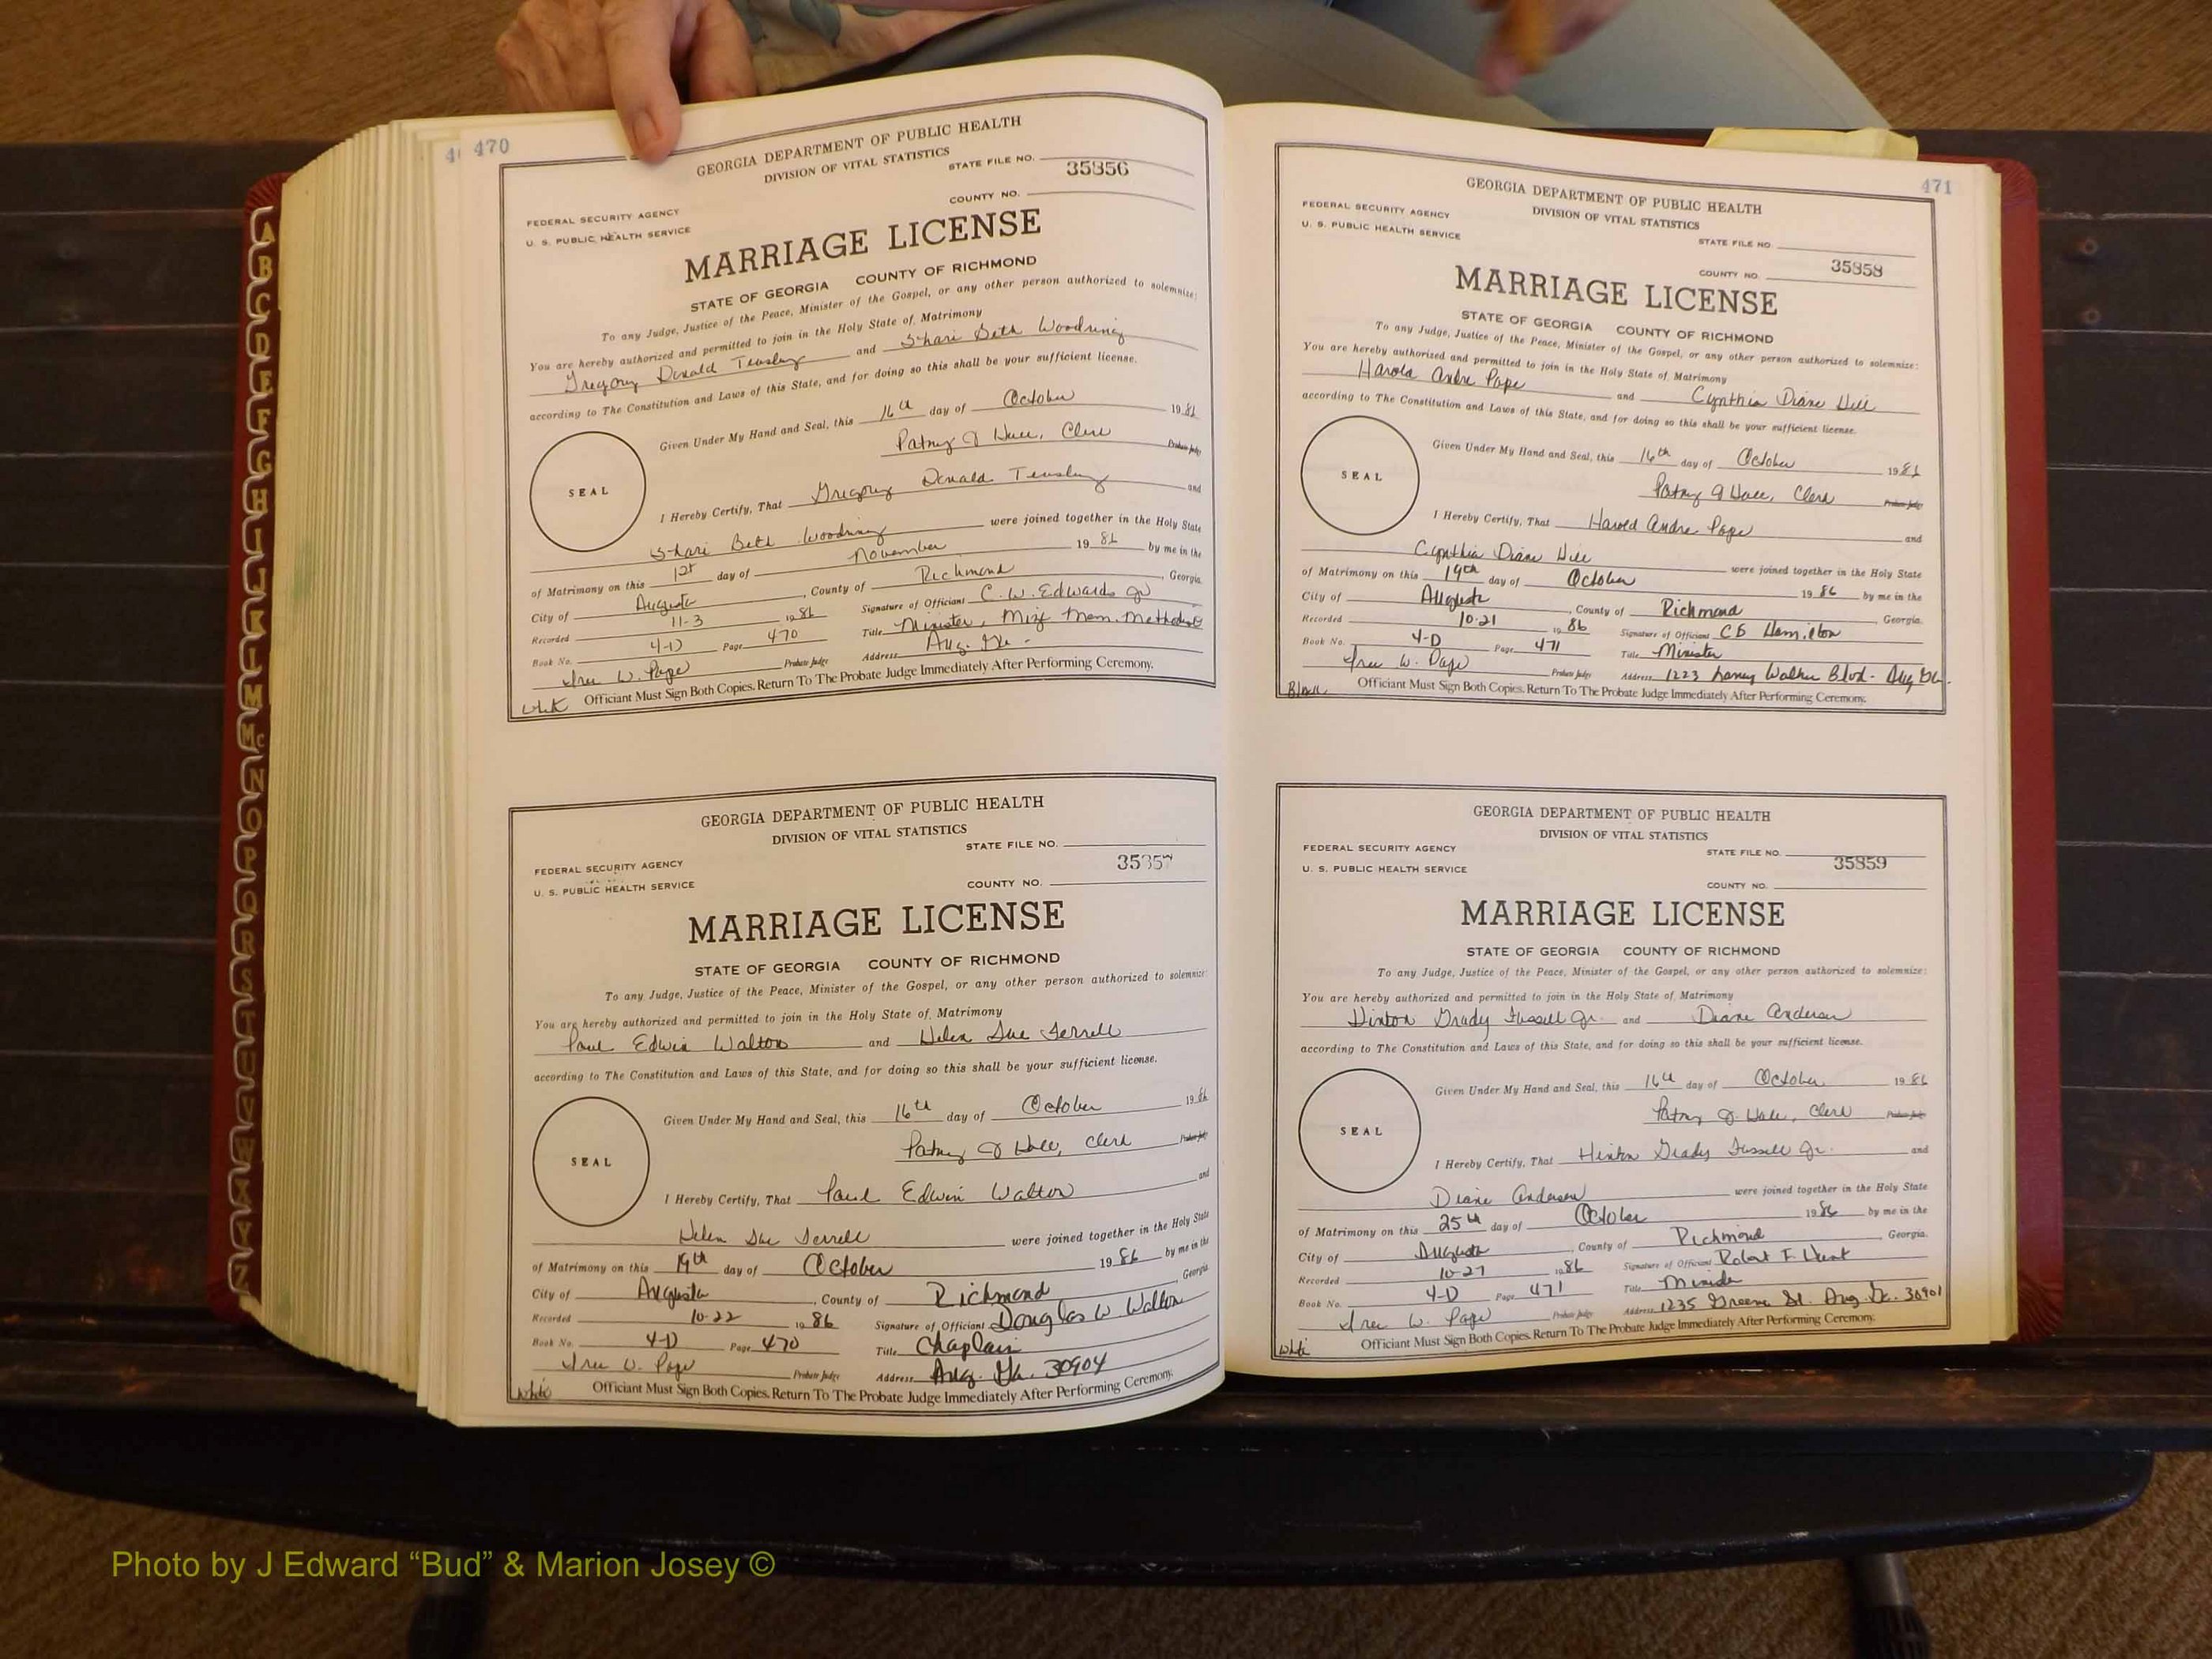 470
GEORGIA DEPARTMENT OF PUBLIC HEALTH
DIVISION OF VITAL STATISTICS
STATE FILE NO. 35856
FEDERAL SECURITY AGENCY
COUNTY NO.
U. S. PUBLIC HEALTH SERVICE
MARRIAGE LICENSE
STATE OF GEORGIA COUNTY OF RICHMOND
To any Judge, Justice of the Peace, Minister of the Gospel, or any other person authorized to solemnize:
You are hereby authorized and permitted to join in the Holy State of Matrimony
Gregory Donald Teasley and Shari Beth Woodring
according to The Constitution and Laws of this State, and for doing so this shall be your sufficient license.
Given Under My Hand and Seal, this 16th day of October 1986
Hall, Clerk Probate Judge
SEAL
I Hereby Certify, That Gregory Donald Teasley and
Shari Beth Woodring were joined together in the Holy State
of Matrimony on this 1st day of November 1986 by me in the
City of Augusta, County of Richmond, Georgia
Recorded 11-3 1986 Signature of Officiant C. W. Edwards Jr
Book No. 4-D Page 470 Title Minister, Mize Mem. Methodist
W. Page Probate Judge Address Aug. Ga.
White Officiant Must Sign Both Copies. Return To The Probate Judge Immediately After Performing Ceremony.
GEORGIA DEPARTMENT OF PUBLIC HEALTH
DIVISION OF VITAL STATISTICS
STATE FILE NO. 35857
FEDERAL SECURITY AGENCY
COUNTY NO.
U. S. PUBLIC HEALTH SERVICE
MARRIAGE LICENSE
STATE OF GEORGIA COUNTY OF RICHMOND
To any Judge, Justice of the Peace, Minister of the Gospel, or any other person authorized to solemnize:
You are hereby authorized and permitted to join in the Holy State of Matrimony
Paul Edwin Walton and Helen Sue Terrell
according to The Constitution and Laws of this State, and for doing so this shall be your sufficient license.
Given Under My Hand and Seal, this 16th day of October 1986
Hall, Clerk Probate Judge
SEAL
I Hereby Certify, That Paul Edwin Walton and
Helen Sue Terrell were joined together in the Holy State
of Matrimony on this 19th day of October 1986 by me in the
City of Augusta, County of Richmond, Georgia
Recorded 10-22 1986 Signature of Officiant Douglas W Walton
Book No. 4-D Page 470 Title Chaplain
W. Page Probate Judge Address Aug. Ga. 30904
White Officiant Must Sign Both Copies. Return To The Probate Judge Immediately After Performing Ceremony.
471
GEORGIA DEPARTMENT OF PUBLIC HEALTH
DIVISION OF VITAL STATISTICS
FEDERAL SECURITY AGENCY
STATE FILE NO.
U. S. PUBLIC HEALTH SERVICE
35858
COUNTY NO.
MARRIAGE LICENSE
STATE OF GEORGIA COUNTY OF RICHMOND
To any Judge, Justice of the Peace, Minister of the Gospel, or any other person authorized to solemnize:
You are hereby authorized and permitted to join in the Holy State of Matrimony
Harold Andre Pope and Cynthia Diane Hill
according to The Constitution and Laws of this State, and for doing so this shall be your sufficient license.
Given Under My Hand and Seal, this 16th day of October 1986
Hall, Clerk Probate Judge
SEAL
I Hereby Certify, That Harold Andre Pope and
Cynthia Diane Hill were joined together in the Holy State
of Matrimony on this 19th day of October 1986 by me in the
City of Augusta, County of Richmond Georgia
Recorded 10-21 1986 Signature of Officiant Hamilton
Book No. 4-D Page 471 Title Minister
W. Page Probate Judge Address 1223 Laney Walker Blvd. Aug Ga.
Black Officiant Must Sign Both Copies. Return To The Probate Judge Immediately After Performing Ceremony.
GEORGIA DEPARTMENT OF PUBLIC HEALTH
DIVISION OF VITAL STATISTICS
FEDERAL SECURITY AGENCY
STATE FILE NO. 35859
U. S. PUBLIC HEALTH SERVICE
COUNTY NO.
MARRIAGE LICENSE
STATE OF GEORGIA COUNTY OF RICHMOND
To any Judge, Justice of the Peace, Minister of the Gospel, or any other person authorized to solemnize:
You are hereby authorized and permitted to join in the Holy State of Matrimony
Hinton Grady Fussell Jr. and Diane Anderson
according to The Constitution and Laws of this State, and for doing so this shall be your sufficient license.
Given Under My Hand and Seal, this 16th day of October 1986
Hall, Clerk Probate Judge
SEAL
I Hereby Certify, That Hinton Grady Fussell Jr. and
Diane Anderson were joined together in the Holy State
of Matrimony on this 25th day of October 1986 by me in the
City of Augusta, County of Richmond Georgia.
Recorded 10-27 1986 Signature of Officiant Robert F. Hunt
Book No. 4-D Page 471 Title Minister
W. Page Probate Judge Address 1235 Greene St. Aug. Ga. 30901
White Officiant Must Sign Both Copies. Return To The Probate Judge Immediately After Performing Ceremony.
A
B
C
D
E
F
G
H
I
J
K
L
M
Mc
N
O
P
Q
R
S
T
U
V
W
X
Y
Z
Photo by J Edward “Bud” & Marion Josey ©